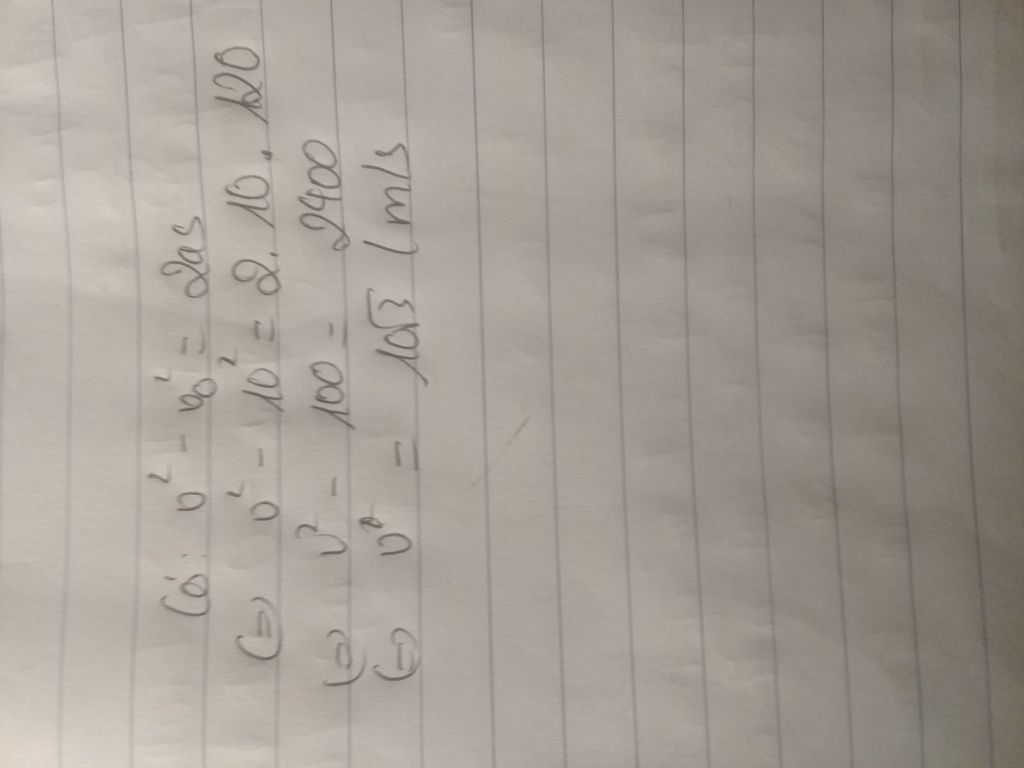 Có: v² - v₀² = 2as
(=) v² - 10² = 2.10.120
(=) v² - 100 = 2400
(=) v = 10√3 (m/s